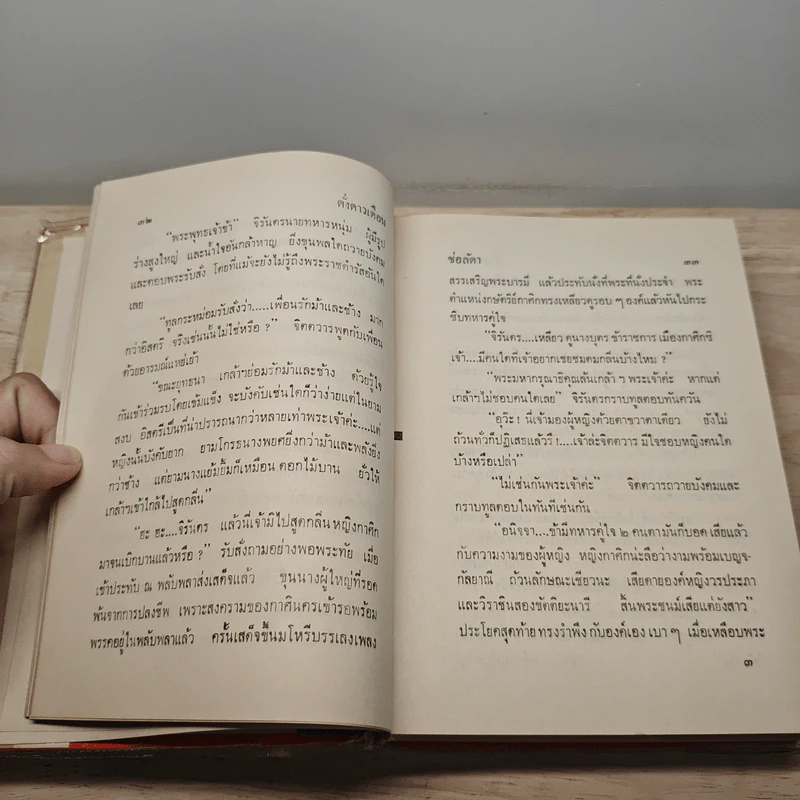 ๓๒
ดั่งดาวเดือน
“พระพุทธเจ้าข้า” จิรันดรนายทหารหนุ่ม ผู้มีรูป
ร่างสูงใหญ่ และน้ำใจอันกล้าหาญ ยิ่งขุนพลใดถวายบังคม
และตอบพระรับสั่ง โดยที่แม้จะยังไม่รู้ถึงพระราชดำรัสอันใด
เลย
“ทูลกระหม่อมรับสั่งว่า.....เพื่อนรักม้าและช้าง มาก
กว่าอิสตรี จริงเช่นนั้นไม่ใช่หรือ ?” จิตตวารพูดกับเพื่อน
ด้วยอารมณ์แหย่เย้า
“ขณะยุทธนา เกล้าฯย่อมรักม้าและช้าง ด้วยรู้ใจ
กันเข้าร่วมรบโดยเข้มแข็ง จะบังคับเช่นใดก็ว่าง่ายแต่ในยาม
สงบ อิสตรีเป็นที่น่าปรารถนากว่าหลายเท่าพระเจ้าค่ะ....แต่
หญิงนั้นบังคับยาก ยามโกรธนางพยศยิ่งกว่าม้าและพลังยิ่ง
กว่าช้าง แต่ยามนางแย้มยิ้มก็เหมือน ดอกไม้บาน ยั่วให้
เกล้าฯเข้าใกล้ไปสูดกลิ่น”
“ฮะ ฮะ....จิรันดร แล้วนี่เจ้ามิไปสูดกลิ่นหญิงกาศิก
มาจนเบิกบานแล้วหรือ ?” รับสั่งถามอย่างพอพระทัย เมื่อ
เข้าประทับ ณ พลับพลาส่งเสด็จแล้ว ขุนนางผู้ใหญ่ที่รอด
พ้นจากการปลงชีพ เพราะสงครามของกาศินครเข้ารอพร้อม
พรรคอยู่ในพลับพลาแล้ว ครั้นเสด็จขึ้นมโหรีบรรเลงเพลง
ช่อลัดา
๓๓
สรรเสริญพระบารมี แล้วประทับนั่งที่พระที่นั่งประจำ พระ
ตำแหน่งกษัตริย์กาศิกทรงเหลียวดูรอบ ๆ องค์แล้วหันไปกระ
ซิบทหารคู่ใจ
“จิรันดร....เหลียว ดูนางบุตร ข้าราชการ เมืองกาศิกซิ
เจ้า....มีคนใดที่เจ้าอยากเชยชมดมกลิ่นบ้างไหม ?”
“พระมหากรุณาธิคุณล้นเกล้า ฯ พระเจ้าค่ะ หากแต่
เกล้าฯไม่ชอบคนใดเลย” จิรันดรกราบทูลตอบทันควัน
“อุว๊ะ! นี่เจ้ามองผู้หญิงด้วยตาขวาตาเดียว ยังไม่
ถ้วนทั่วก็ปฏิเสธแล้วรึ !....เจ้าล่ะจิตตวาร มีใจชอบหญิงคนใด
บ้างหรือเปล่า”
“ไม่เช่นกันพระเจ้าค่ะ” จิตตวารถวายบังคมและ
กราบทูลตอบในทันทีเช่นกัน
“อนิจจา....ข้ามีทหารคู่ใจ ๒ คนตามันก็บอด เสียแล้ว
กับความงามของผู้หญิง หญิงกาศิกน่ะลือว่างามพร้อมเบญจ-
กัลยาณี ถ้วนลักษณะเชียวนะ เสียดายองค์หญิงวรประภา
และวิราชินสองขัตติยะนารี สิ้นพระชนม์เสียแต่ยังสาว”
ประโยคสุดท้าย ทรงรำพึง กับองค์เอง เบา ๆ เมื่อเหลือบพระ
๓